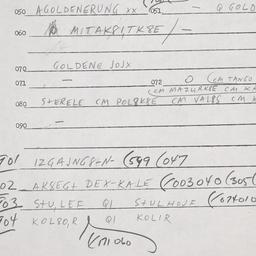 050 AGOLDENERUNG xx 051 — Q GOLD
060 MITAK8I,TK8E / —
070 GOLDENE JOJX
071 — 072 O (CM TANGO
(CM MAZURK8E CM KA
080 STERELE CM POL8K8E CM VAL8S CM
090 —
701 IZGAJNGS-N- (599 (047
02 AKSEGT DEX-KALE (003040 (305(
703 STU,LEF QI STULHOJF (074010
704 KOL8O,R QI KOLIR